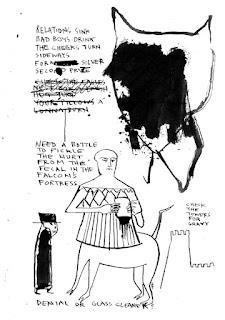 RELATIONS SINK
BAD BOYS DRINK
THE CHEEKS TURN
SIDEWAYS
SILVER
SECOND PRIZE
NEED A BOTTLE
TO PICKLE
THE HURT
FROM THE
FECAL IN THE
FALCOM'S
FORTRESS
CHECK
THE
TOWERS
FOR
GRAVY
DENIAL OR GLASS CLEANER